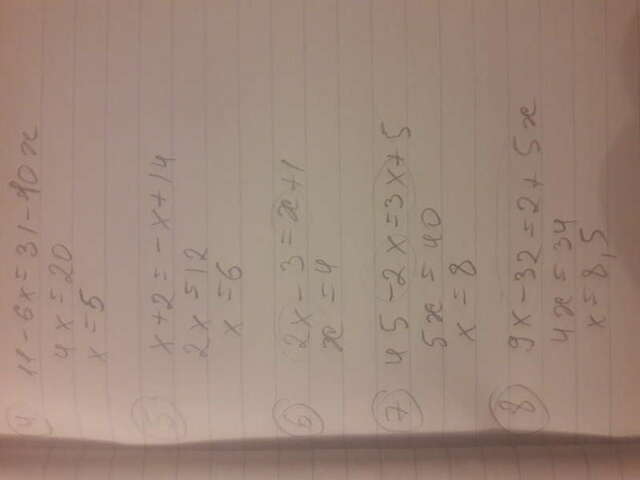 4) 11-6x=31-10x
4x=20
x=5
5) x+2=-x+14
2x=12
x=6
6) 2x-3=x+1
x=4
7) 45-2x=3x+5
5x=40
x=8
8) 9x-32=2+5x
4x=34
x=8,5